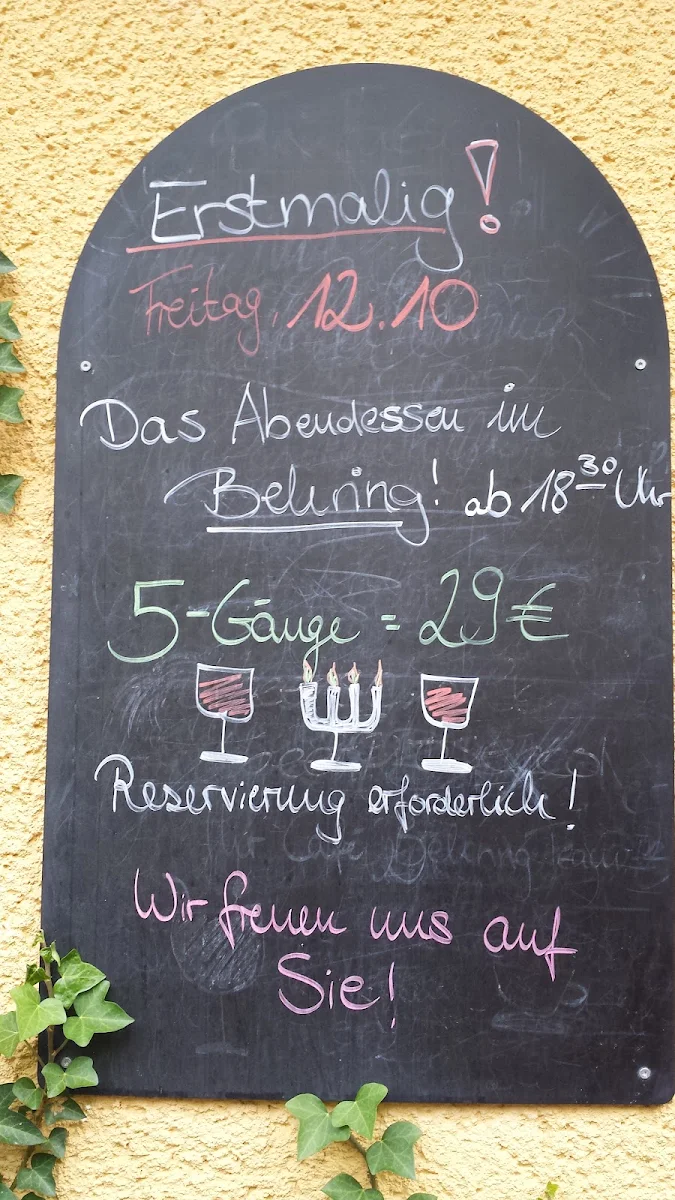 Erstmalig!
Freitag, 12.10
Das Abendessen im
Behring! ab 18 30 Uhr
5-Gänge = 29€
Reservierung erforderlich!
Wir freuen uns auf
Sie!